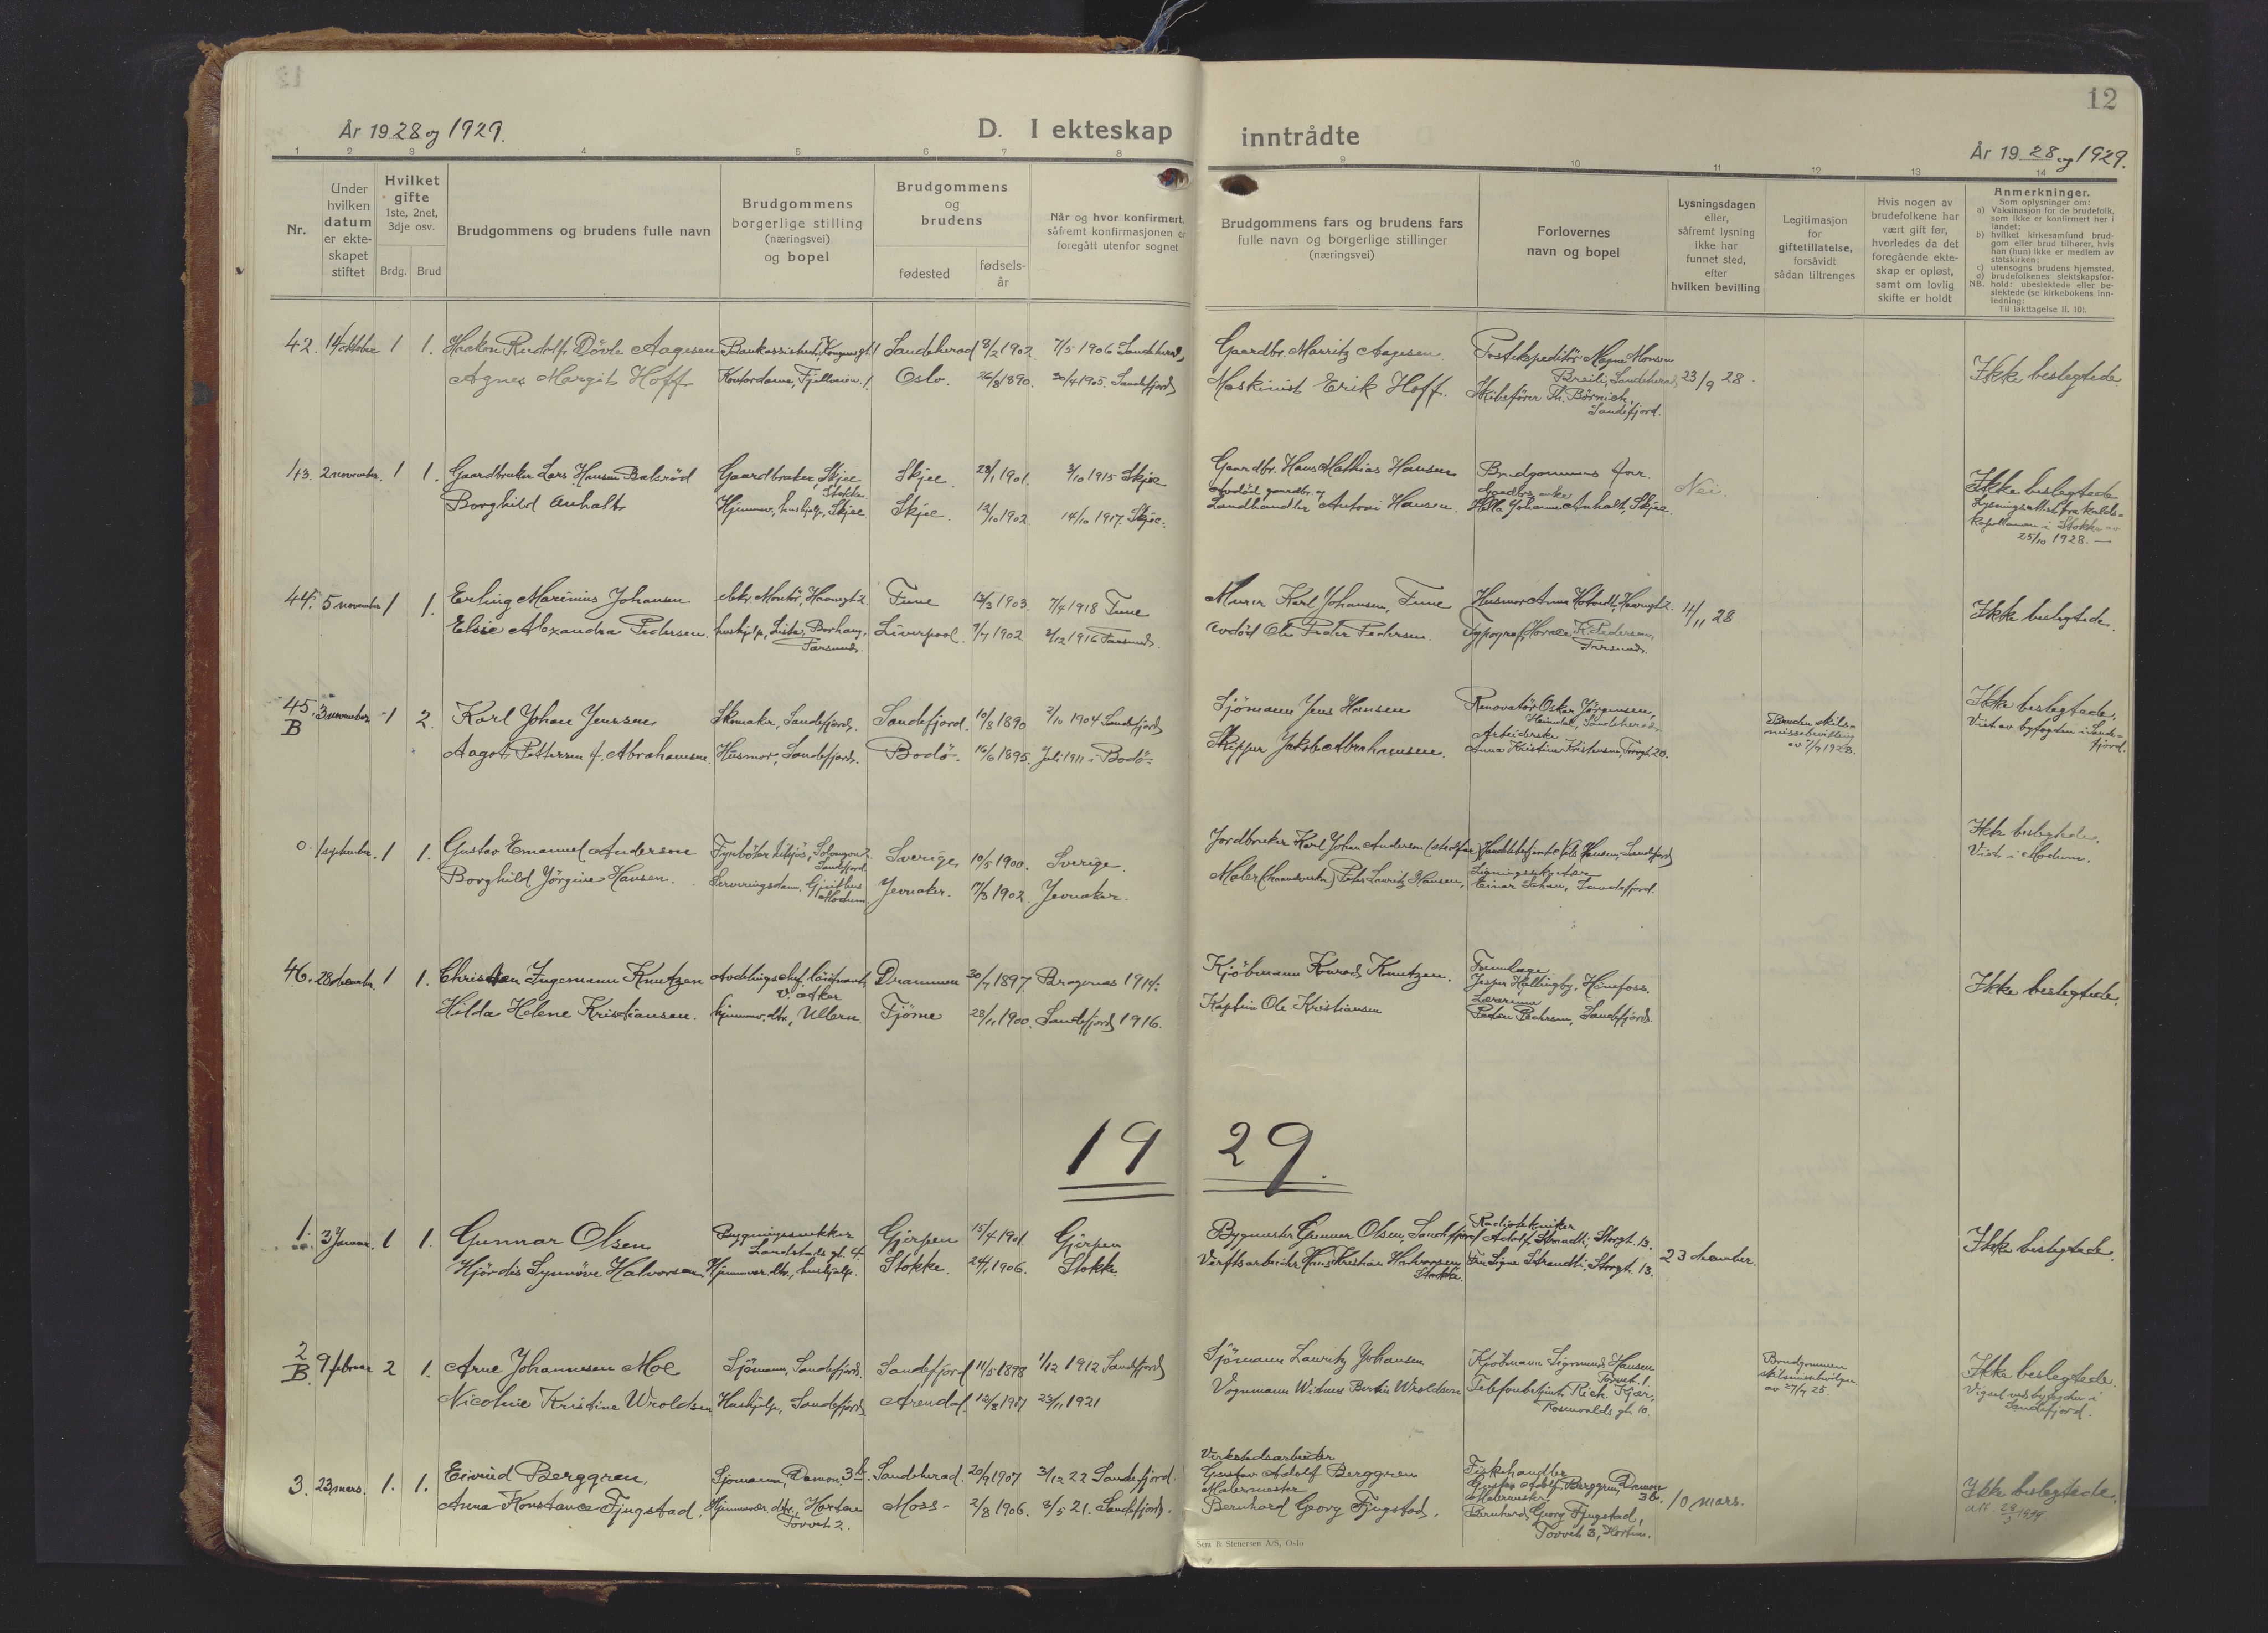 12
År 1928 og 1929.
D. I ekteskap inntrådte
År 1928 og 1929.
1 2 3 4 5 6 7 8 9 10 11 12 13 14
Nr.
Under hvilken datum er ekteskapet stiftet
Hvilket gifte 1ste, 2net, 3dje osv.
Brdg. Brud
Brudgommens og brudens fulle navn
Brudgommens borgerlige stilling (næringsvei) og bopel
Brudgommens og brudens
fødested
fødselsår
Når og hvor konfirmert, såfremt konfirmasjonen er foregått utenfor sognet
Brudgommens fars og brudens fars fulle navn og borgerlige stillinger (næringsvei)
Forlovernes navn og bopel
Lysningsdagen eller, såfremt lysning ikke har funnet sted, efter hvilken bevilling
Legitimasjon for giftetillatelse, forsåvidt sådan tiltrenges
Hvis nogen av brudefolkene har vært gift før, hvorledes da det foregående ekteskap er opløst, samt om lovlig skifte er holdt
Anmerkninger.
Som oplysninger om:
a) Vaksinasjon for de brudefolk, som ikke er konfirmert her i landet;
b) hvilket kirkesamfund brudgom eller brud tilhører, hvis han (hun) ikke er medlem av statskirken;
c) utensogns brudens hjemsted.
d) brudefolkenes slektskapsforhold: ubeslektede eller beslektede (se kirkebokens innledning:
NB.
Til iakttagelse II. 10).
42. 14 oktober 1 1. Haakon Rudolf Dövle Aagesen Bankassistent, Kongensgt. Sandeherad 8/2 1902. 7/5 1906 Sandeherad Gaardbr. Marritz Aagesen. Postekspeditör Magne Monsen
Agnes Margit Hoff Kontordame, Fjellveien 1 Oslo. 26/8 1890. 30/4 1905. Sandefjord Maskinist Erik Hoff. Breili, Sandeherad 23/9 28. Ikke beslegtede.
Skibsfører Th. Börnick, Sandefjord.
43. 2 november. 1 1. Gaardbruker Lars Hansen Balsröd Gaardbruker, Skjee Stokke Skjee. 28/1 1901. 3/10 1915 Skjee Gaardbr. Hans Mathias Hansen Brudgommens far. Nei. Ikke beslegtede
Borghild Anholt Hjemmev. hushjelp, Skjee. Skjee. 12/10 1902. 14/10 1917. Skjee. Avdöd gaardbr. og Landhandler Antoni Hansen. Gaardbr. enke Helle Johanne Anholt, Skjee. Lysningsattest fra kaldskapellanen i Stokke av 25/10 1928. —
44. 5 november 1 1. Erling Marinius Johansen elektr. Montör, Havnegt 2. Tune 13/3 1903. 7/4 1918 Tune Murer Karl Johansen, Tune Husmor Anna Havnegt 2. 4/11 28 Ikke beslegtede.
Elsie Alexandra Pedersen. hushjelp, Lista, Borhaug, Farsund. Liverpool. 9/7 1902 3/12 1916 Farsund. avdöd Ole Peder Pedersen. Typograf K. Pedersen, Farsund.
45. B 3 november 1 2. Karl Johan Jenssen Skomaker, Sandefjord. Sandefjord. 10/8 1890 2/10 1904 Sandefjord Sjömann Jens Hansen Renovatör Oskar Jörgensen, Heimdal, Sandeherad Bruden skilsmissebevilling av 7/9 1928. Ikke beslegtede. Viet av byfogden i Sandefjord.
Aagot Pettersen f. Abrahamsen. Husmor, Sandefjord. Bodö. 16/6 1895. Juli 1911 i Bodö. Skipper Jakob Abrahamsen. Arbeiderske Anna Kristine Kristensen, Torvgt. 20.
0. 1 september. 1 1. Gustav Emanuel Anderson Sandefjord Sverige, 10/5 1900. Sverige. Jordbruker Karl Johan Anderson Hansen, Sandefjord Ikke beslegtede. Viet i Modum.
Borghild Jörgine Hansen. Serveringsdame, Geithus Modum Jevnaker. 17/3 1902. Jevnaker. Maler (haandverker) Peder Lauritz Hansen, Ligningssekretær Einar Johan, Sandefjord.
46. 28 december. 1 1. Christian Ingemann Knutzen Avdelingschef, löitnant, V. Aker Drammen 30/7 1897. Bragernes 1914. Kjöbmann Konrad Knutzen. Jesper Hallingby, Hönefoss. Ikke beslegtede.
Hilda Helene Kristiansen. hjemmev. dtr., Ullern. Tjöme 28/11 1900. Sandefjord 1916. Kaptein Ole Kristiansen Lærerinne Pedersen, Sandefjord.
19 29.
1. 3 Januar. 1 1. Gunnar Olsen Bygningssnekker Landstads gt. 4. Gjerpen 15/4 1901. Gjerpen Bygmester Gunnar Olsen, Sandefjord Radiotekniker Adolf Strandli, Storgt. 13. 23 december. Ikke beslegtede.
Hjördis Synnöve Halvorsen Hjemmev. dtr., hushjelp. Stokke. 24/1 1906. Stokke. Verftsarbeider Hans Kristian Halvorsen Stokke. Fru Signe Strandli, Storgt. 13.
2 B. 9 februar 2 1. Arne Johannesen Moe Sjömann, Sandefjord. Sandefjord 11/5 1898 1/12 1912 Sandefjord Sjömann Lauritz Johansen Kjöbmann Sigmund Hansen Torvet 1. Brudgommens skilsmissebevilgn. av 27/7 25. Ikke beslegtede. Viget ved byfogden i Sandefjord.
Nicoline Kristine Wroldsen Hushjelp, Sandefjord Arendal. 12/8 1907 23/11 1921 Vognmann Bertin Wroldsen Telefonbetjent Rich. Kjær, Rosenvolds gt. 10.
3. 23 mars. 1. 1. Eivind Berggren, Sjömann, Dronn. 3 b. Sandeherad. 20/9 1907 3/12 22 Sandefjord. Verkstedsarbeider Gustav Adolf Berggren Fiskehandler Gustav Adolf Berggren, Dronn. 3 b. 10 mars. Ikke beslegtede.
Anna Konstance Fjugstad. Hjemmevær. dtr., Horten Torvet 2. Moss. 2/8 1906. 8/5 21. Sandefjord. Malermester Bernhard Georg Fjugstad. Malermester Bernhard Georg Fjugstad, Torvet 3, Horten.
Sem & Stenersen A/S, Oslo